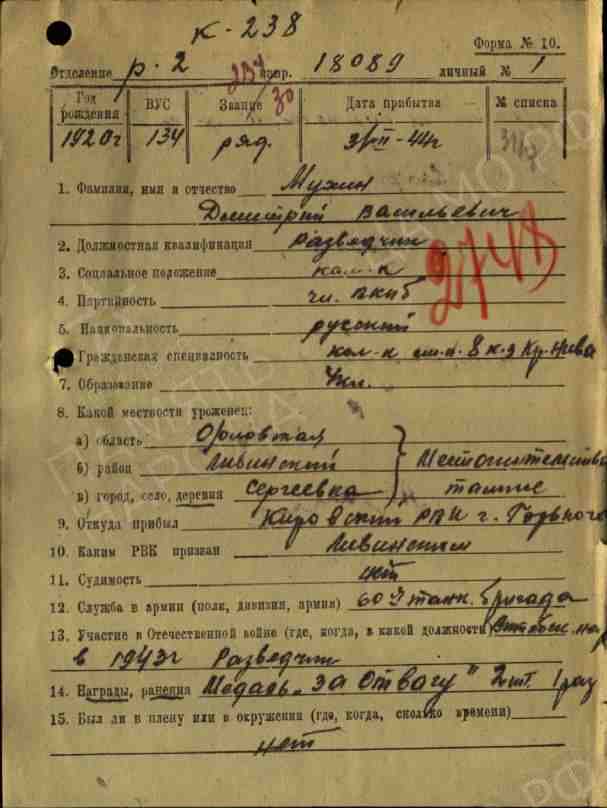 к-238
Форма № 10.
Отделение р.2 напр. 18089 личный № 1
237
30
Год рождения ВУС Звание Дата прибытия № списка
1920г 134 ряд. 44г
1. Фамилия, имя и отчество Мухин
Дмитрий Васильевич
2. Должностная квалификация Разведчик
2748
3. Социальное положение кол-к
4. Партийность чл. ВКПб
5. Национальность русский
Гражданская специальность кол-к 8 к-з Кр. Нива
7. Образование 4кл.
8. Какой местности уроженец:
а) область Орловская
б) район Ливинский Местожительство
в) город, село, деревня Сергеевка тамже
9. Откуда прибыл Кировский РВК г. Горького
10. Каким РВК призван Ливинским
11. Судимость нет
12. Служба в армии (полк, дивизия, армия) 60 танк. бригада
13. Участие в Отечественной войне (где, когда, в какой должности
в 1943г Разведчик
14. Награды, ранения Медаль „За Отвагу" 2шт. 1 раз
15. Был ли в плену или в окружении (где, когда, сколько времени)
нет